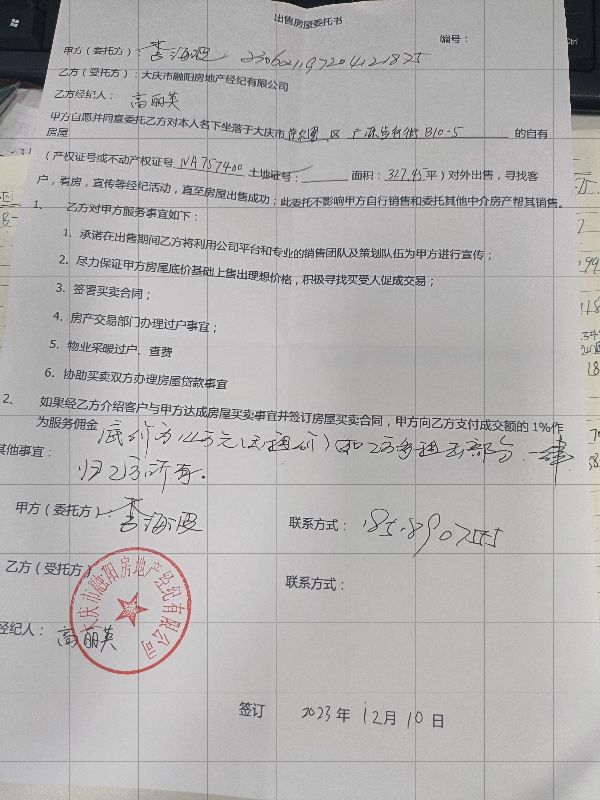 出售房屋委托书
编号：
甲方（委托方）：李海波 230621197204121875
乙方（受托方）：大庆市融阳房地产经纪有限公司
乙方经纪人：高丽英
甲方自愿并同意委托乙方对本人名下坐落于大庆市 区 步行街 B10-5 的自有
房屋
（产权证号或不动产权证号 NA757400 土地证号： 面积：327.45 平）对外出售，寻找客
户，看房，宣传等经纪活动，直至房屋出售成功；此委托不影响甲方自行销售和委托其他中介房产帮其销售。
1、 乙方对甲方服务事宜如下：
1. 承诺在出售期间乙方将利用公司平台和专业的销售团队及策划队伍为甲方进行宣传；
2. 尽力保证甲方房屋底价基础上售出理想价格，积极寻找买受人促成交易；
3. 签署买卖合同；
4. 房产交易部门办理过户事宜；
5. 物业采暖过户、查费
6. 协助买卖双方办理房屋贷款事宜
2、 如果经乙方介绍客户与甲方达成房屋买卖事宜并签订房屋买卖合同，甲方向乙方支付成交额的 1%作
为服务佣金
其他事宜： 底价为 万元 部分，一律
归乙方所有。
甲方（委托方）：李海波 联系方式：
乙方（受托方） 联系方式：
经纪人：高丽英
大庆市融阳房地产经纪有限公司
签订 2023 年 12 月 10 日